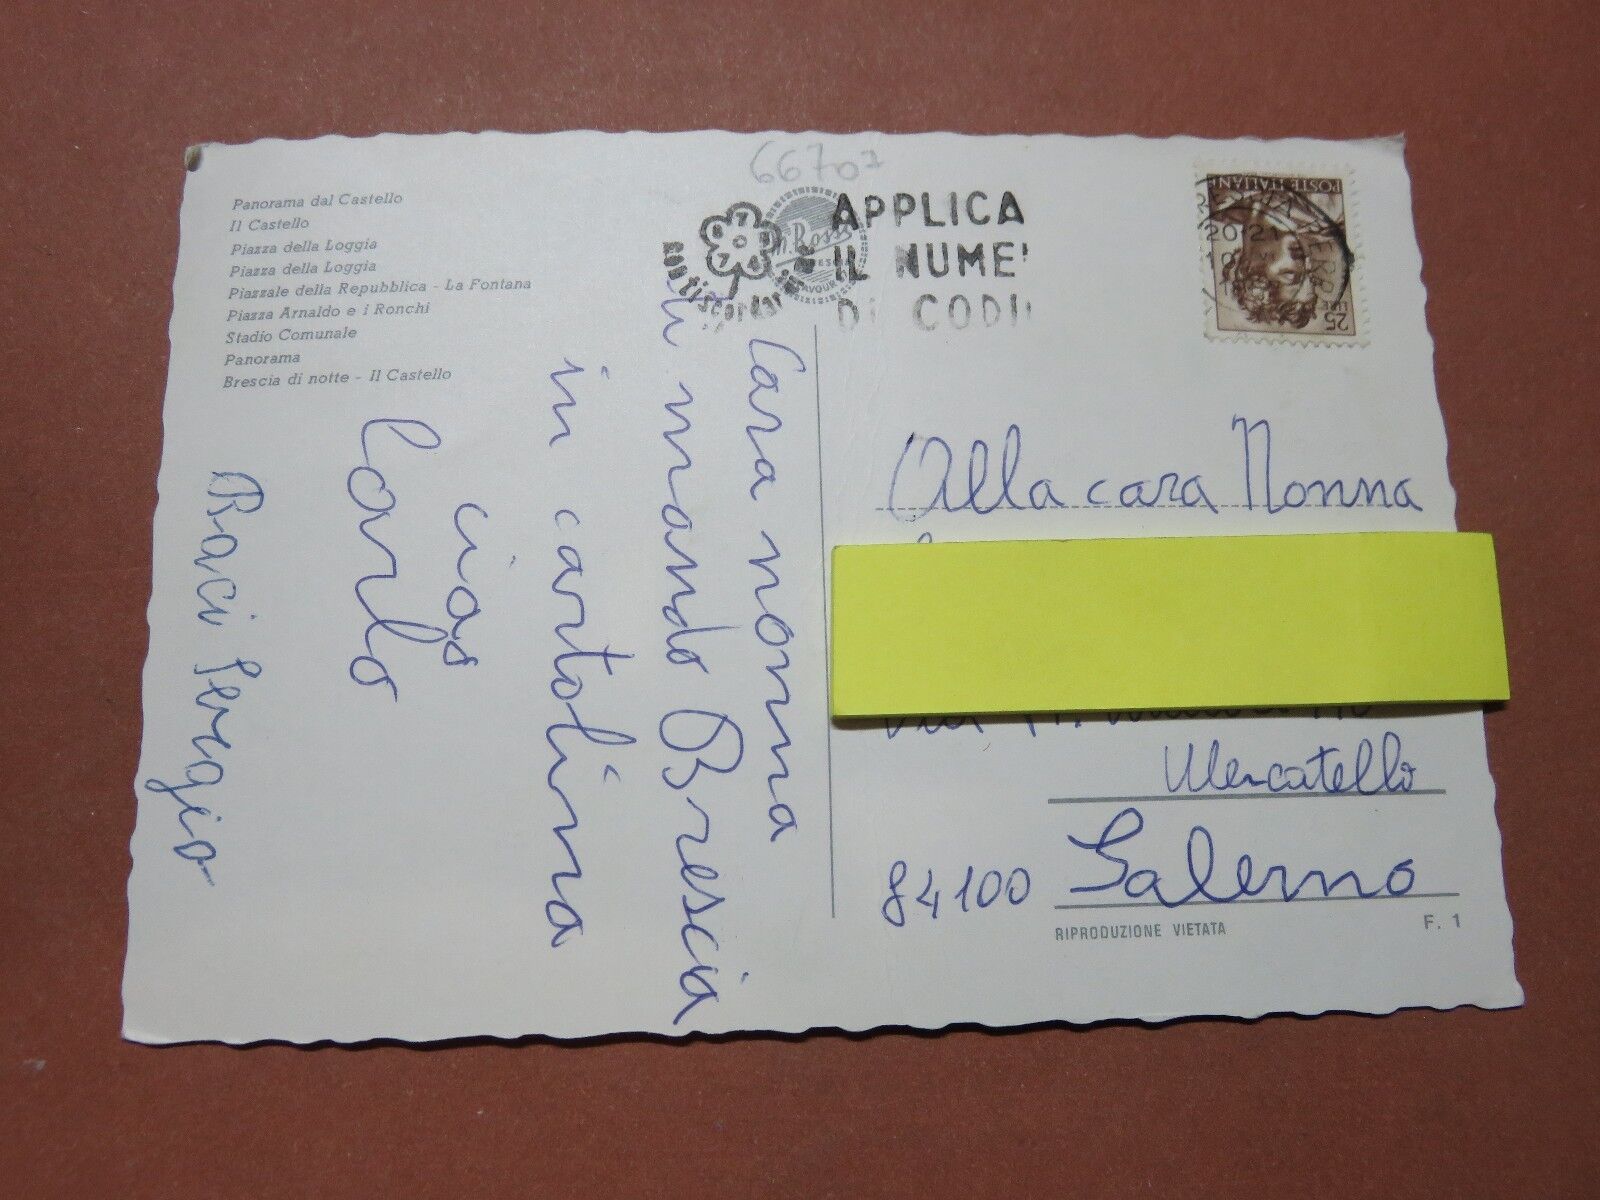 Panorama dal Castello
Il Castello
Piazza della Loggia
Piazza della Loggia
Piazzale della Repubblica - La Fontana
Piazza Arnaldo e i Ronchi
Stadio Comunale
Panorama
Brescia di notte - Il Castello
66707
APPLICA
IL NUME
DI CODI
POSTE ITALIANE
20-21
25
Cara nonna
ti mando Brescia
in cartolina
ciao
Carlo
Baci Sergio
Alla cara Nonna
Mercatello
84100 Salerno
RIPRODUZIONE VIETATA
F. 1